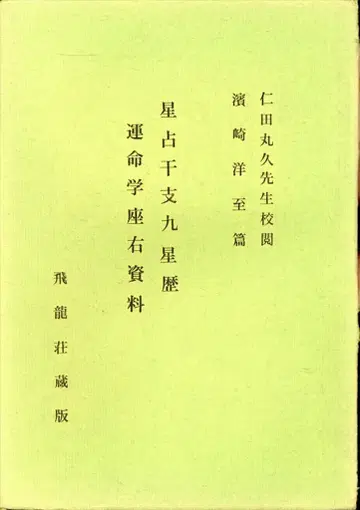 仁田丸久先生校閲
濱崎洋至篇
星占干支九星歴
運命学座右資料
飛龍荘蔵版